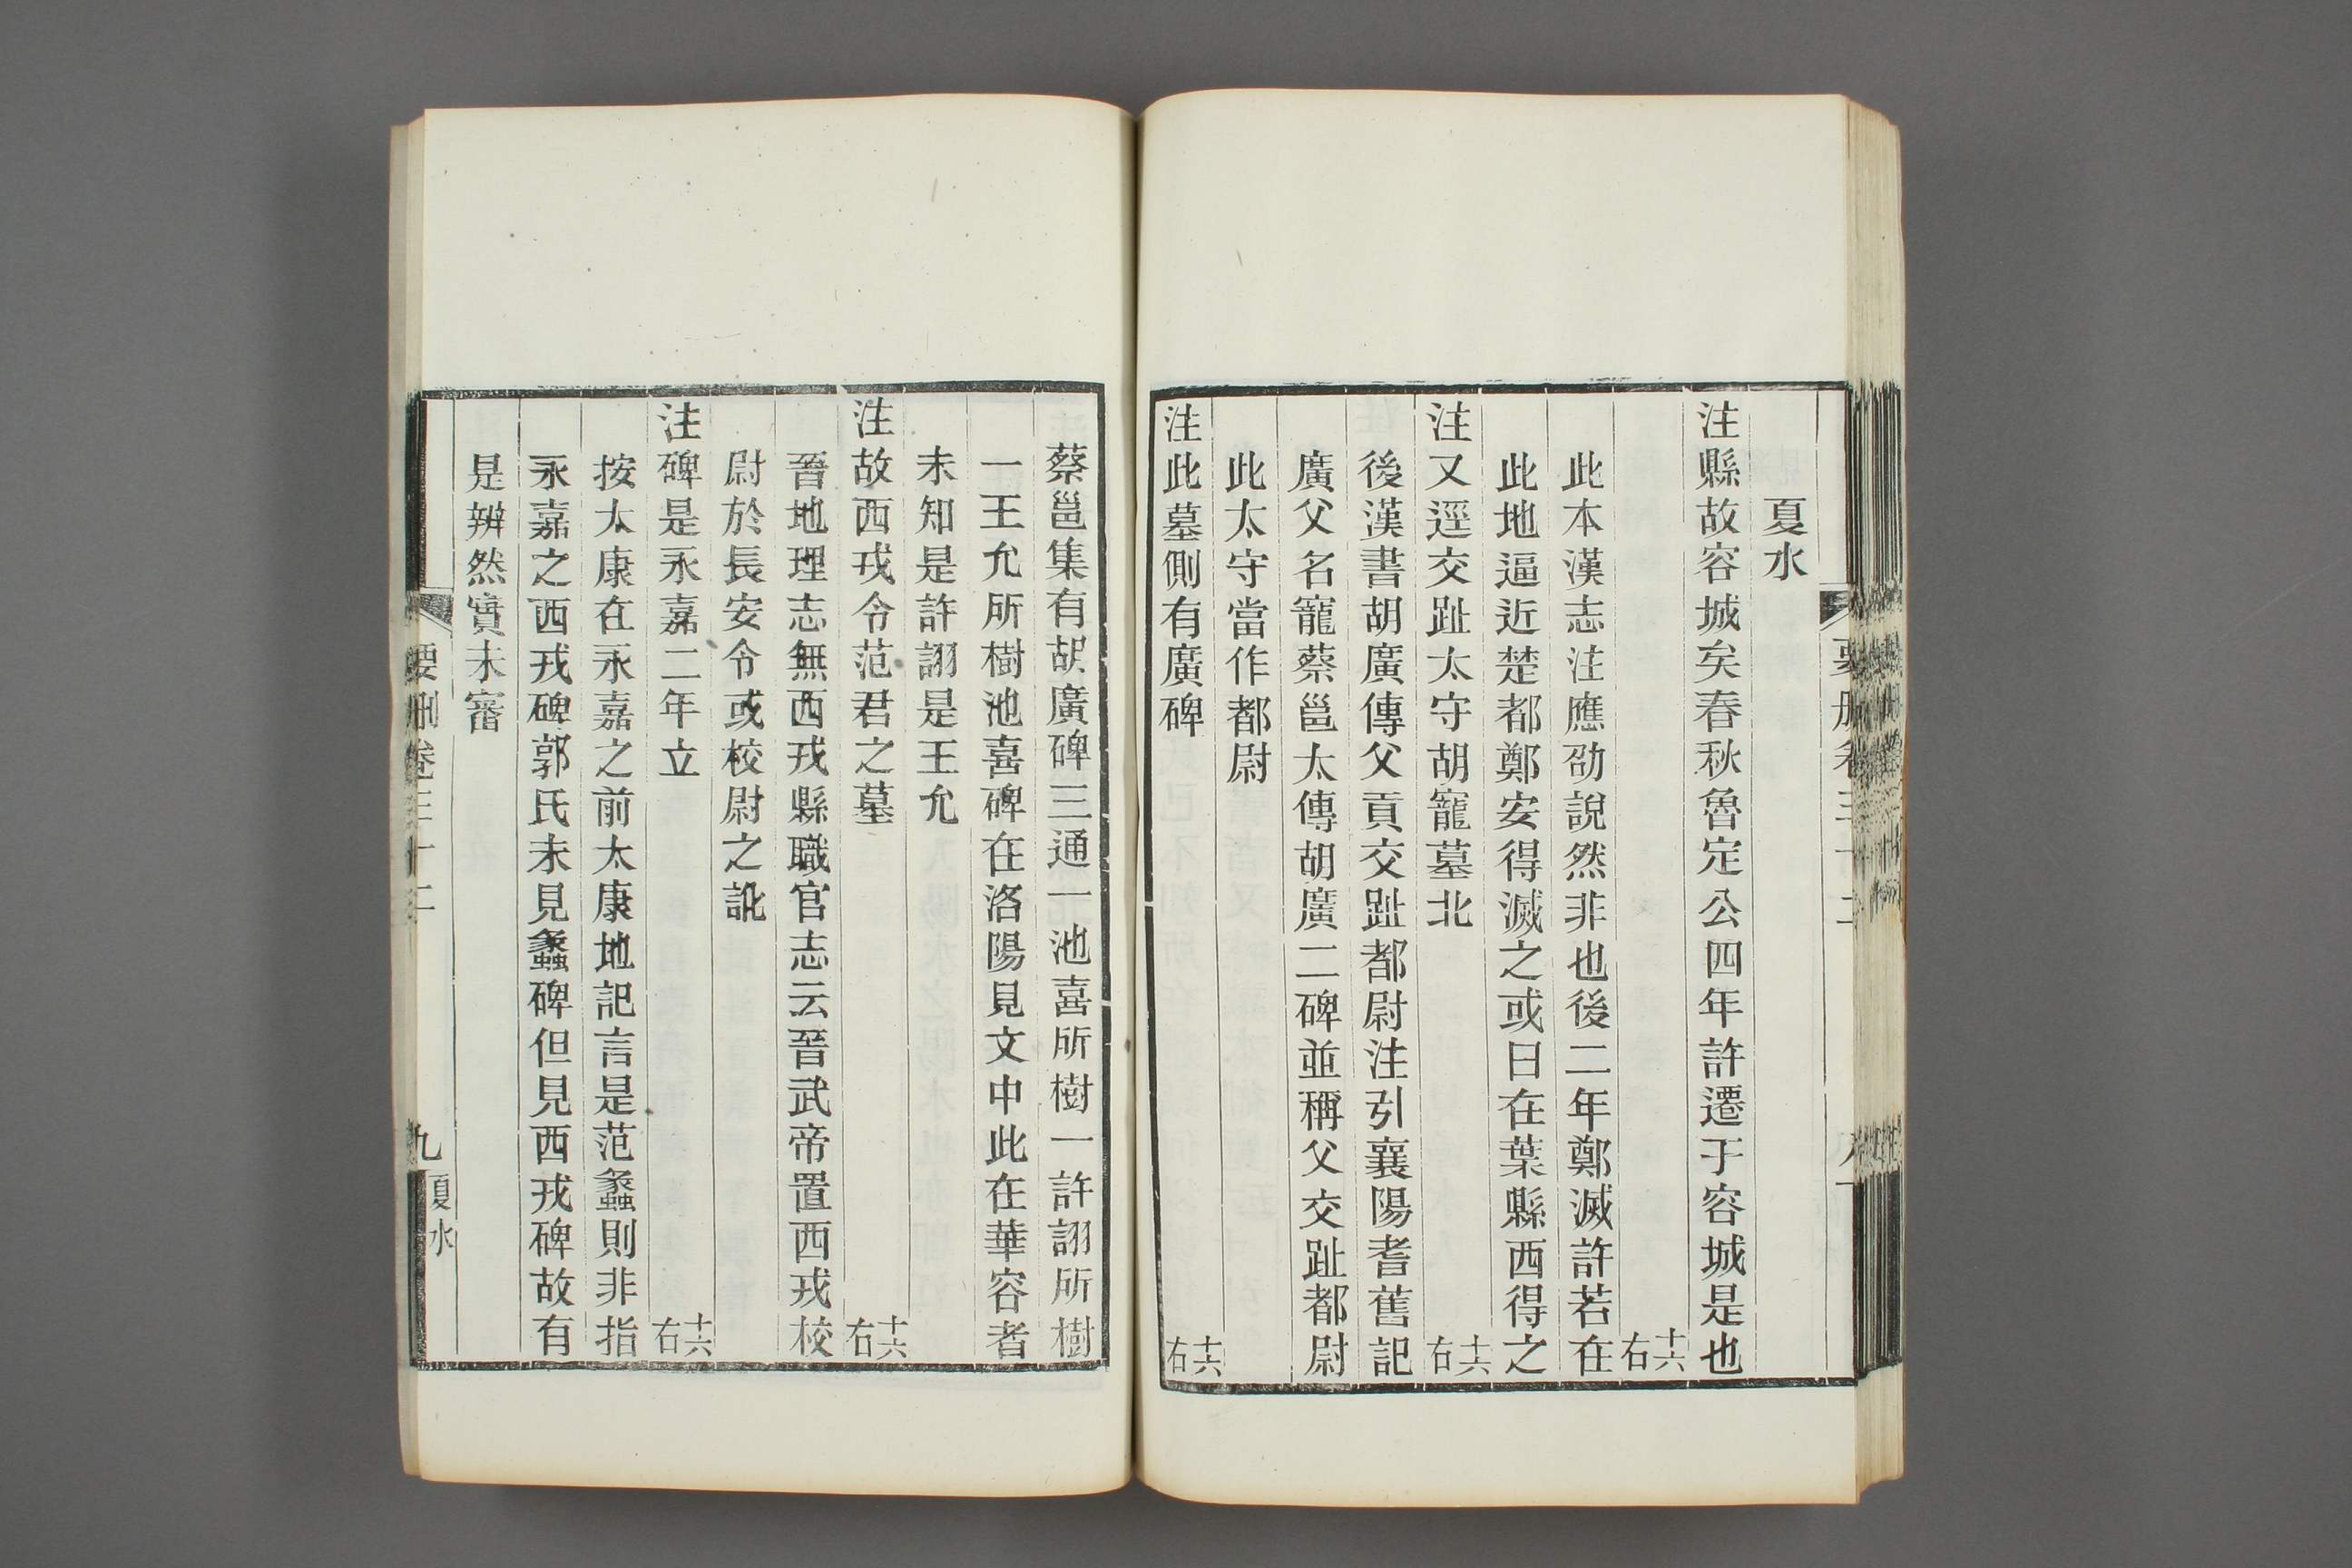 夏水
注縣故容城矣春秋魯定公四年許遷于容城是也
十六右
此本漢志注應劭說然非也後二年鄭滅許若在
此地逼近楚都鄭安得滅之或曰在葉縣西得之
注又逕交趾太守胡寵墓北
十六右
後漢書胡廣傳父貢交趾都尉注引襄陽耆舊記
廣父名寵蔡邕太傅胡廣二碑並稱父交趾都尉
此太守當作都尉
注此墓側有廣碑
十六右
蔡邕集有胡廣碑三通一池喜所樹一許詡所樹
一王允所樹池喜碑在洛陽見文中此在華容者
未知是許詡是王允
注故西戎令范君之墓
十六右
晉地理志無西戎縣職官志云晉武帝置西戎校
尉於長安令或校尉之訛
注碑是永嘉二年立
十六右
按太康在永嘉之前太康地記言是范蠡則非指
永嘉之西戎碑郭氏未見蠡碑但見西戎碑故有
是辨然實未審
要刪卷三十二
九
夏水